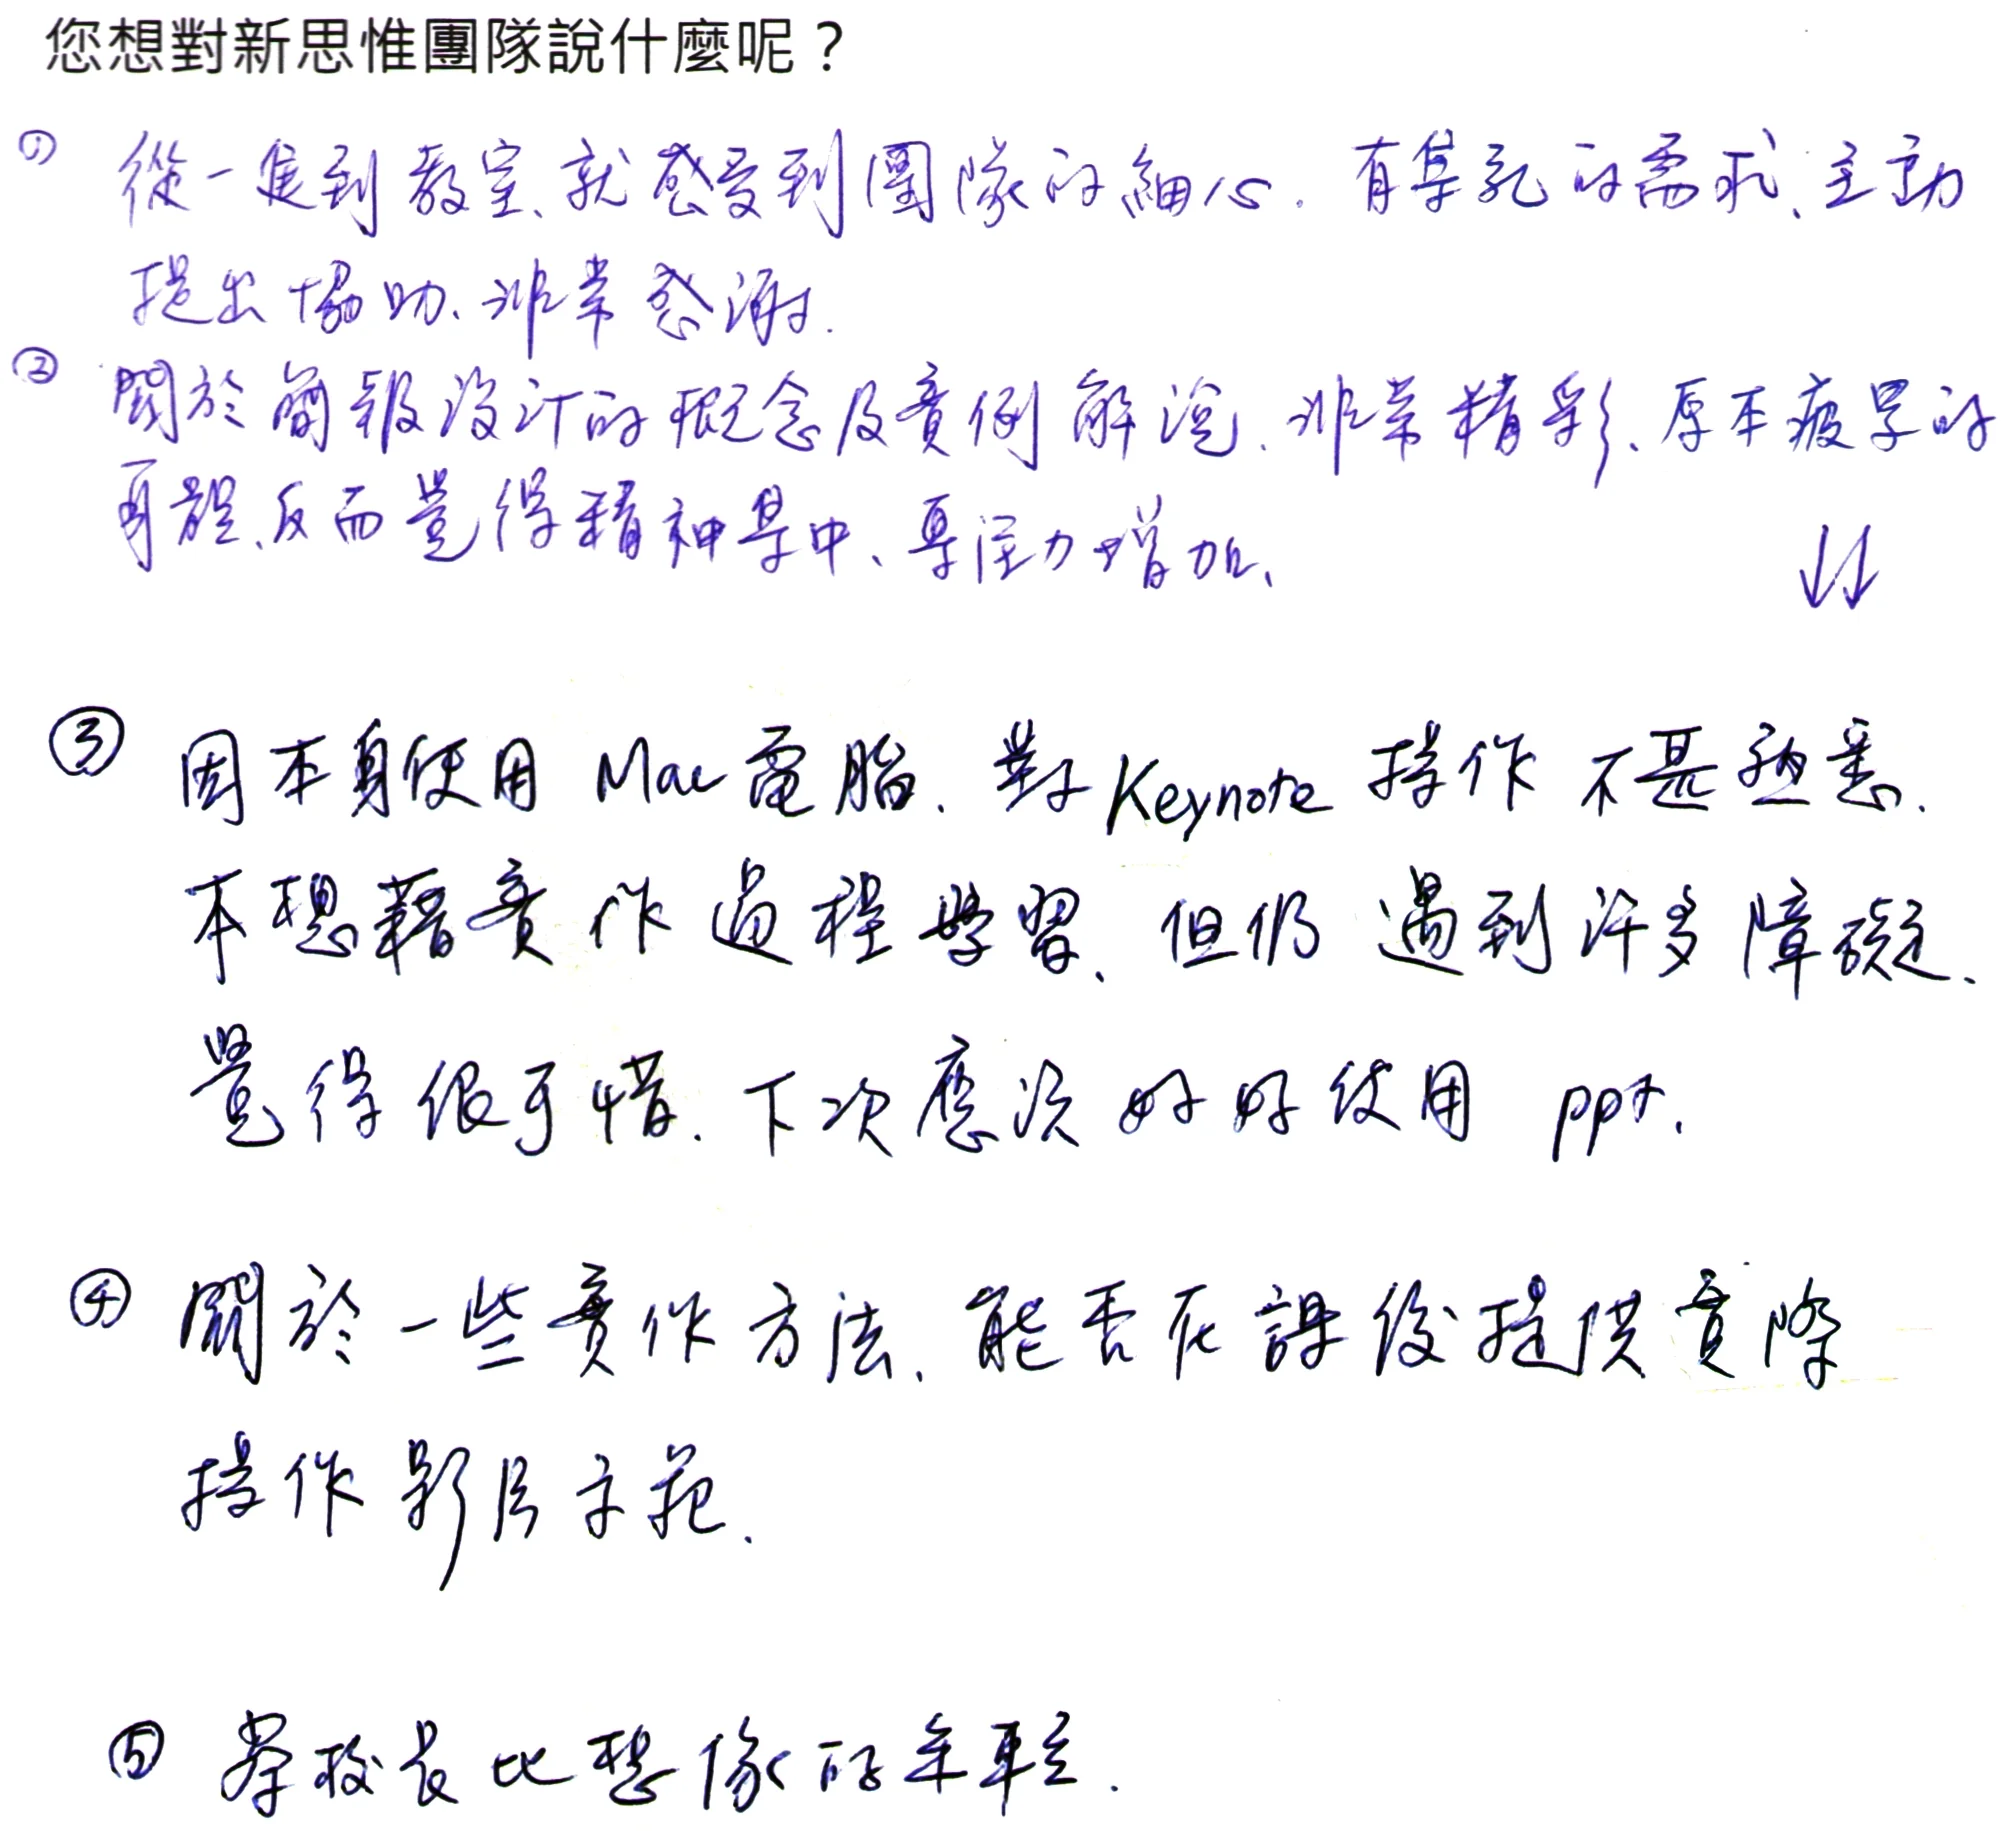 您想對新思惟團隊說什麼呢？
① 從一進到教室、就感受到團隊的細心. 有集乳的需求、主動
提出協助、非常感謝.
② 關於簡報設計的概念及實例解說、非常精彩、原本疲累的
身體、反而覺得精神集中、專注力增加、
③ 因本身使用 Mac 電腦. 對 Keynote 操作不甚熟悉.
本想藉實作過程學習、但仍遇到許多障礙、
覺得很可惜. 下次應該好好使用 ppt.
④ 關於一些實作方法、能否在課後提供實際
操作影片示範.
⑤ 蔡校長比想像的年輕.